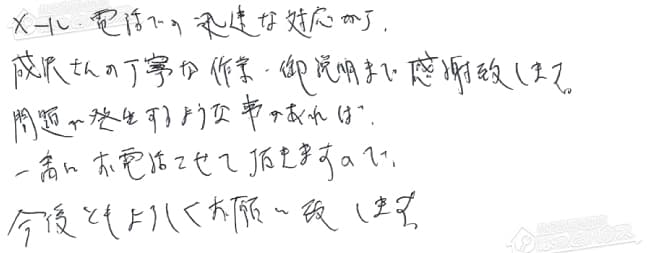 メール・電話での迅速な対応から、
成沢さんの丁寧な作業・御説明まで感謝致します。
問題が発生するような事があれば、
一番にお電話させて頂きますので、
今後ともよろしくお願い致します。